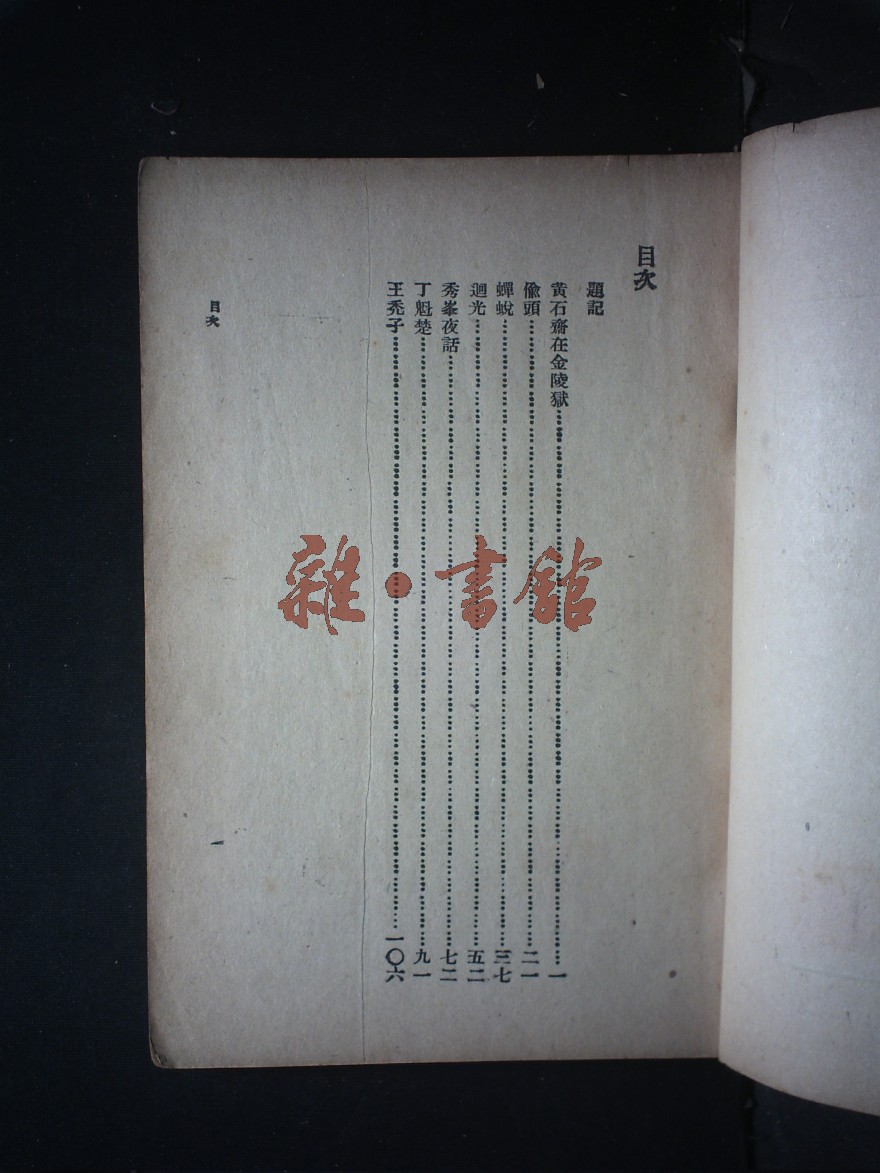 目次
題記
黃石齋在金陵獄……一
偸頭……二一
蟬蛻……三七
迴光……五二
秀峯夜話……七二
丁魁楚……九一
王禿子……一〇六
目次
一
雜·書館